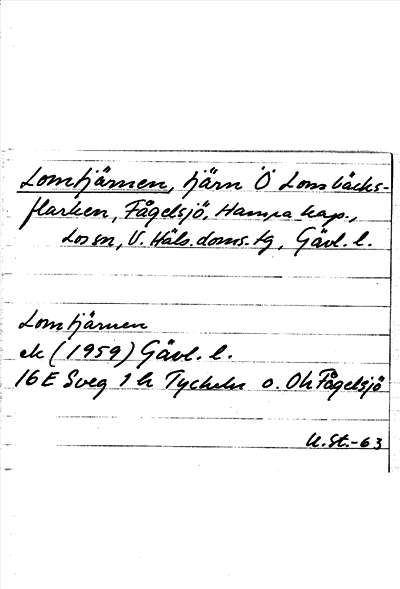 Lomtjärnen, tjärn Ö Lomsbäcks-
flarken, Fågelsjö, Hamra kap.,
Los sn, V. Häls. doms. tg, Gävl. l.
Lomtjärnen
ek (1959) Gävl. l.
16E Sveg 1h Tyckeln o. 0h Fågelsjö
U.St.-63